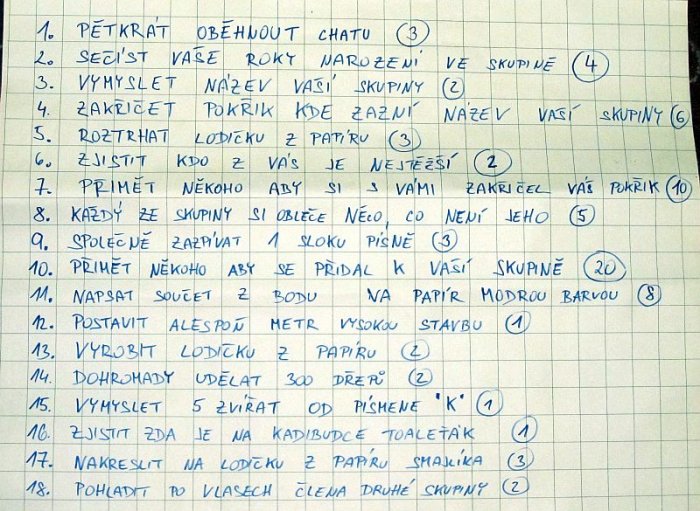 1. PĚTKRÁT OBĚHNOUT CHATU 3
2. SEČÍST VAŠE ROKY NAROZENÍ VE SKUPINĚ 4
3. VYMYSLET NÁZEV VAŠÍ SKUPINY 2
4. ZAKŘIČET POKŘIK KDE ZAZNÍ NÁZEV VAŠÍ SKUPINY 6
5. ROZTRHAT LODIČKU Z PAPÍRU 3
6. ZJISTIT KDO Z VÁS JE NEJTĚŽŠÍ 2
7. PŘIMĚT NĚKOHO ABY SI S VÁMI ZAKŘIČEL VÁŠ POKŘIK 10
8. KAŽDÝ ZE SKUPINY SI OBLEČE NĚCO, CO NENÍ JEHO 5
9. SPOLEČNĚ ZAZPÍVAT 1 SLOKU PÍSNĚ 3
10. PŘIMĚT NĚKOHO ABY SE PŘIDAL K VAŠÍ SKUPINĚ 20
11. NAPSAT SOUČET Z BODU NA PAPÍR MODROU BARVOU 8
12. POSTAVIT ALESPOŇ METR VYSOKOU STAVBU 1
13. VYROBIT LODIČKU Z PAPÍRU 2
14. DOHROMADY UDĚLAT 300 DŘEPŮ 2
15. VYMYSLET 5 ZVÍŘAT OD PÍSMENE "K" 1
16. ZJISTIT ZDA JE NA KADIBUDCE TOALEŤÁK 1
17. NAKRESLIT NA LODIČKU Z PAPÍRU SMAJLÍKA 3
18. POHLADIT PO VLASECH ČLENA DRUHÉ SKUPINY 2